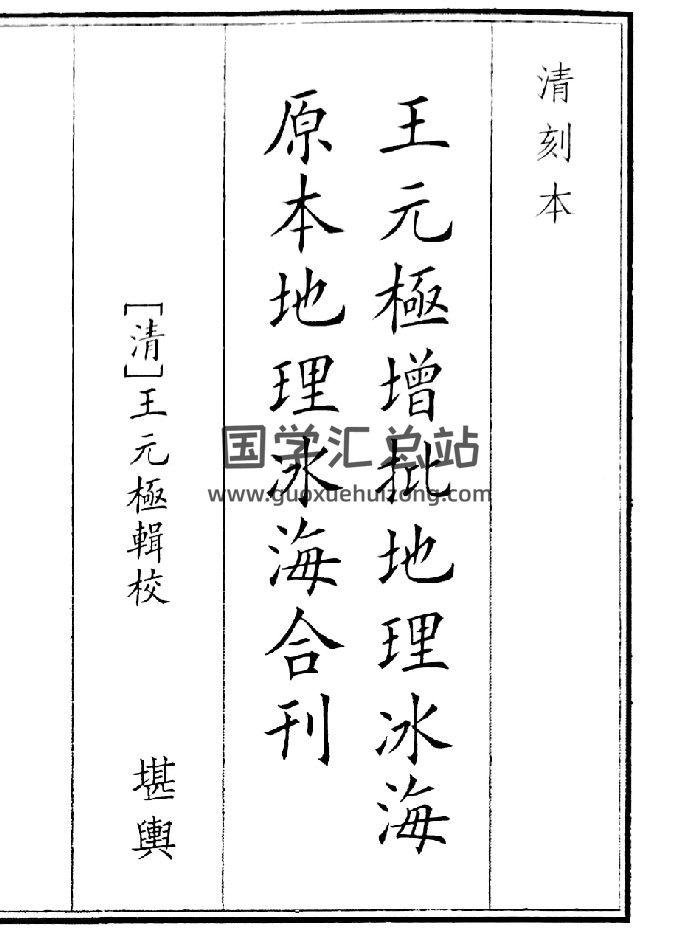 清刻本
王元極增批地理冰海
原本地理冰海合刊
[清]王元極輯校
堪輿
国学汇总站
www.guoxuehuizong.com